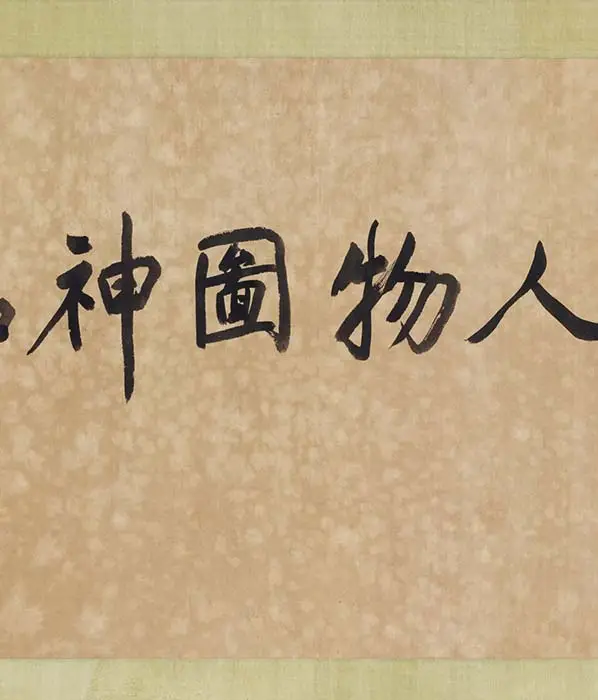 人物圖神